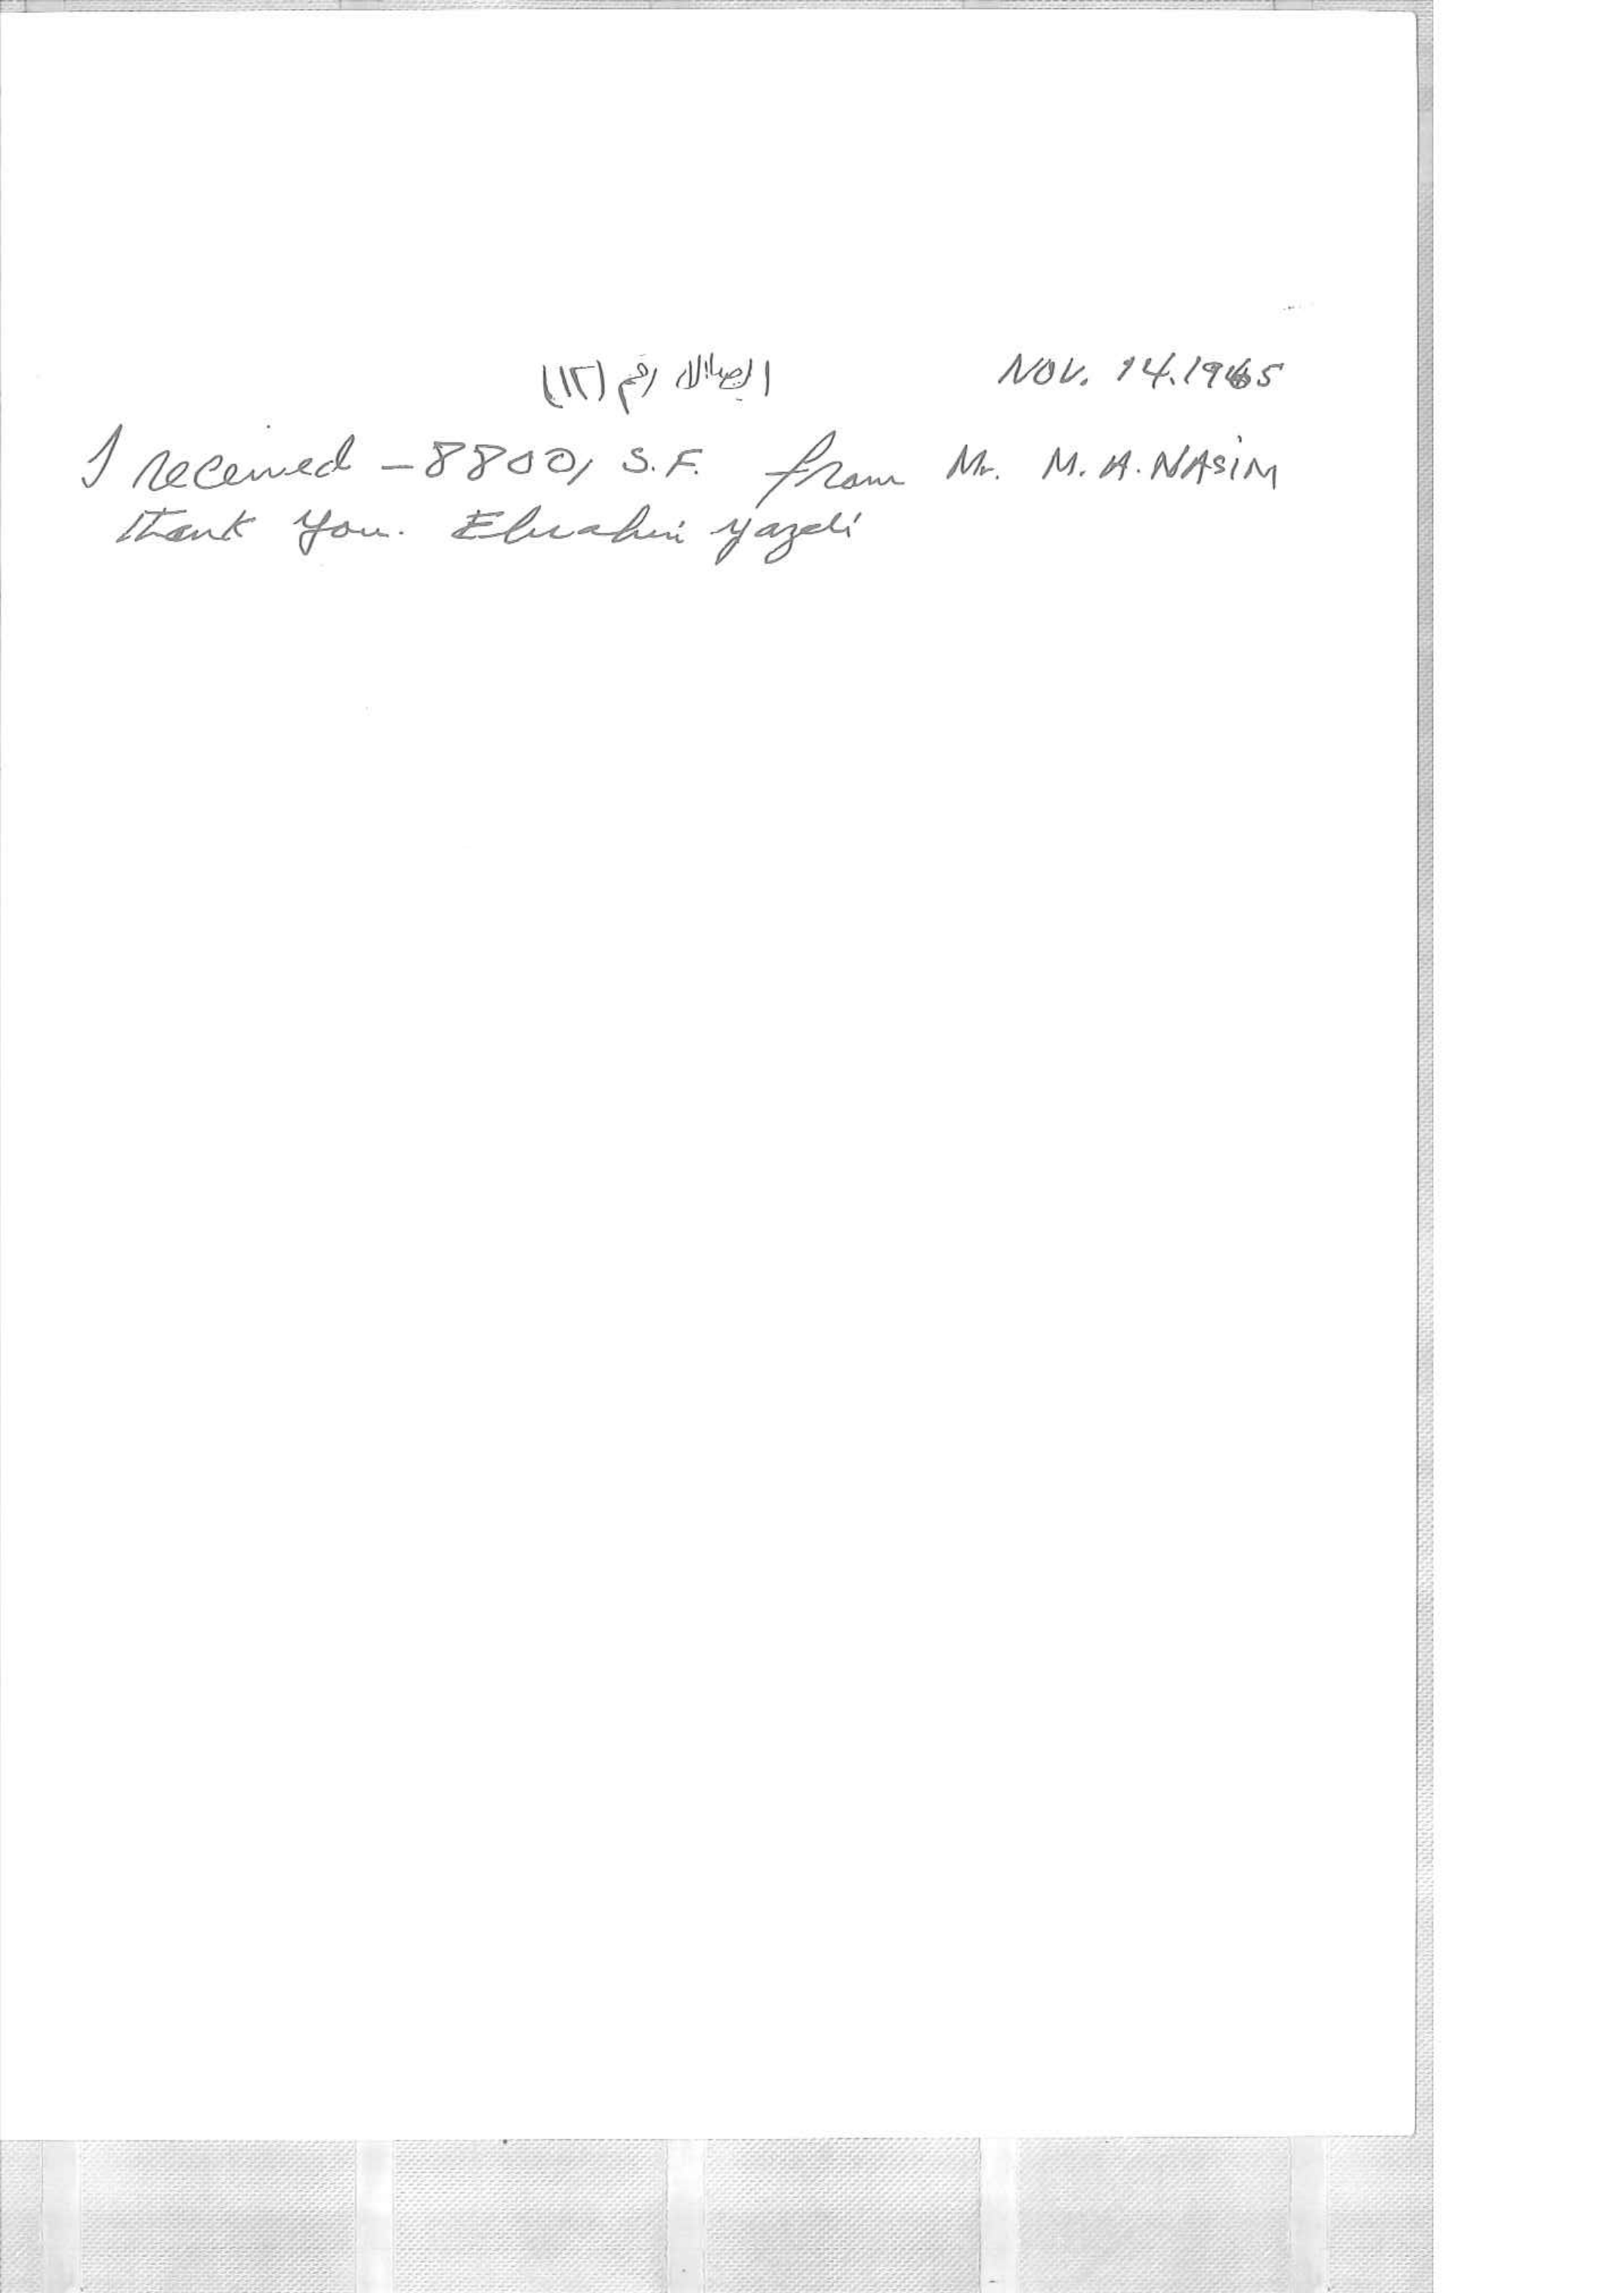 الايصال رقم (١٢) NOV. 14.1965
I received -8800, S.F. from Mr. M.A. NASIM
thank you. Ebrahim yazdi